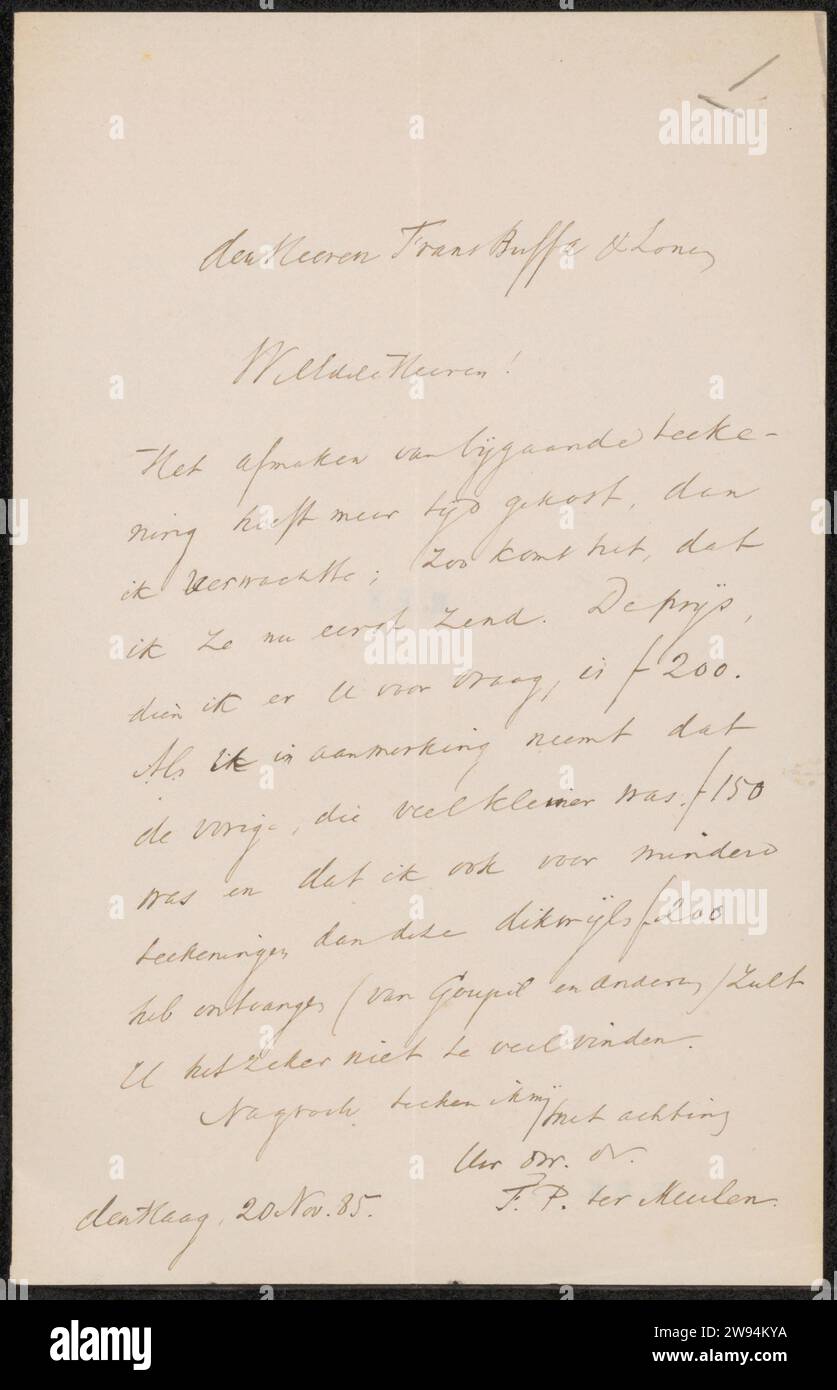 den Heeren Frans Buffa & Zonen
WelEdele Heeren!
Het afmaken van bijgaande teeke-
ning heeft meer tijd gekost, dan
ik verwachtte; zoo komt het, dat
ik ze nu eerst zend. De prijs,
dien ik er U voor vraag, is f 200.
Als ik in aanmerking neemt dat
de vorige, die veel kleiner was, f 150
was en dat ik ook voor mindere
teekeningen dan deze dikwijls f 200
heb ontvangen (van Goupil en anderen) zult
U het zeker niet te veel vinden.
Nagroete, teeken ik mij met achting
Uw dw. dr.
F. P. ter Meulen.
den Haag, 20 Nov. 85.
alamy
Image ID: 2W94KYA
www.alamy.com